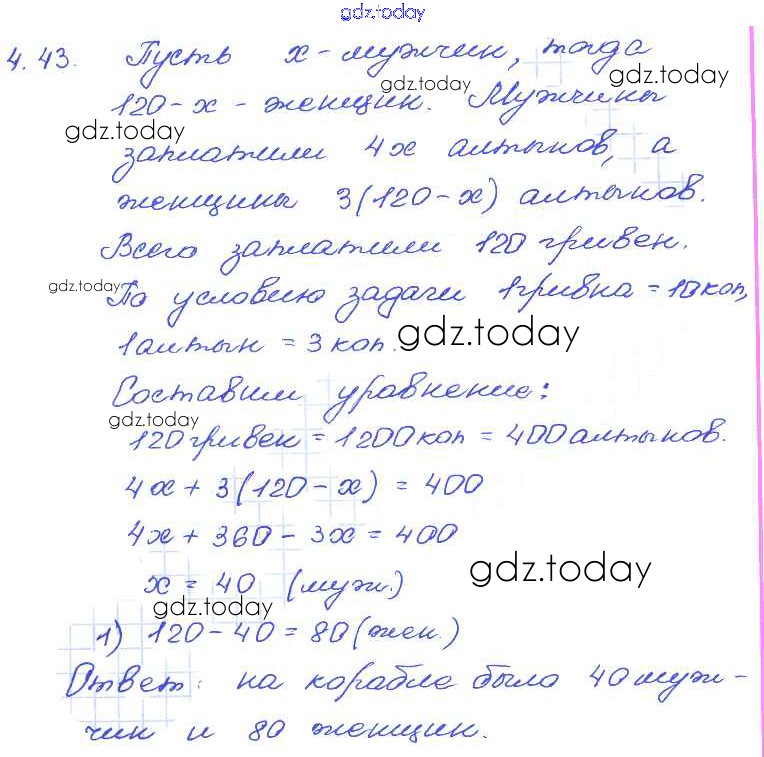 gdz.today
4.43. Пусть x - мужчин, тогда
gdz.today gdz.today
120 - x - женщин. Мужчины
gdz.today
заплатили 4x алтынов, а
женщины 3(120 - x) алтынов.
Всего заплатили 120 гривен.
gdz.today
По условию задачи 1 гривна = 10 коп,
1 алтын = 3 коп. gdz.today
Составим уравнение:
gdz.today
120 гривен = 1200 коп = 400 алтынов.
4x + 3(120 - x) = 400
4x + 360 - 3x = 400
x = 40 (муж.) gdz.today
gdz.today
1) 120 - 40 = 80 (жен.)
Ответ: на корабле было 40 муж-
чин и 80 женщин.